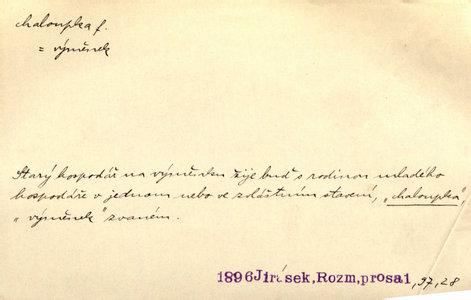 chaloupka f.
= výměnek
Starý hospodář na výměnku žije buď s rodinou mladého
hospodáře v jednom nebo ve zvláštním stavení, „chaloupka",
„výměnek" zvaném.
1896 Jirásek, Rozm, prosa 1, 97, 28